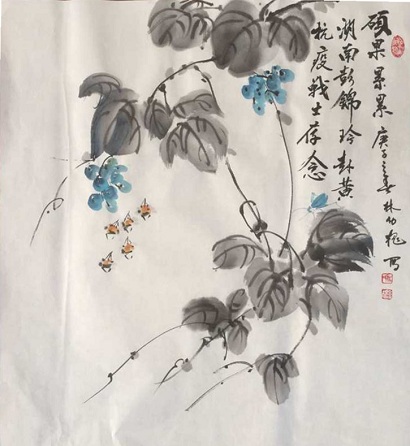 碩果累累 庚子之春林
湖南彭錦玲赴黄
抗疫戰士存念